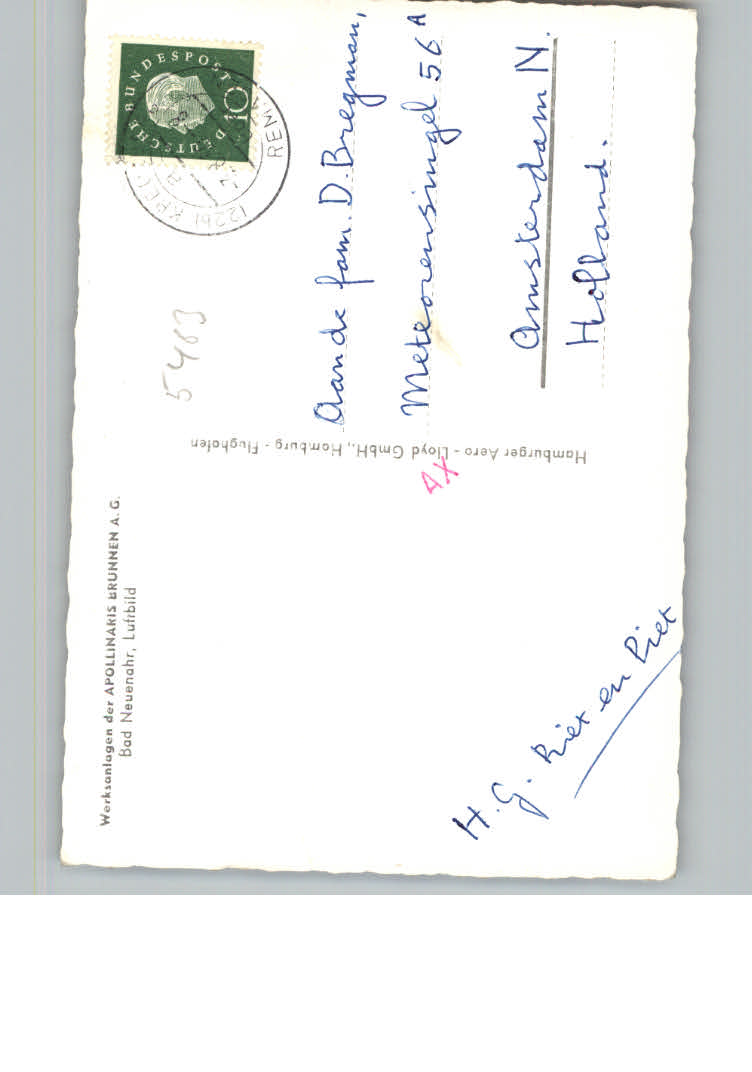 Werksanlagen der APOLLINARIS BRUNNEN A. G.
Bad Neuenahr, Luftbild
H. G. Riet en Piet
Hamburger Aero - Lloyd GmbH., Hamburg - Flughafen
4X
5483
DEUTSCHE BUNDESPOST
10
(22b)
REMA
Aan de fam. D. Bregman,
Meteorensingel 56 A
Amsterdam N.
Holland.